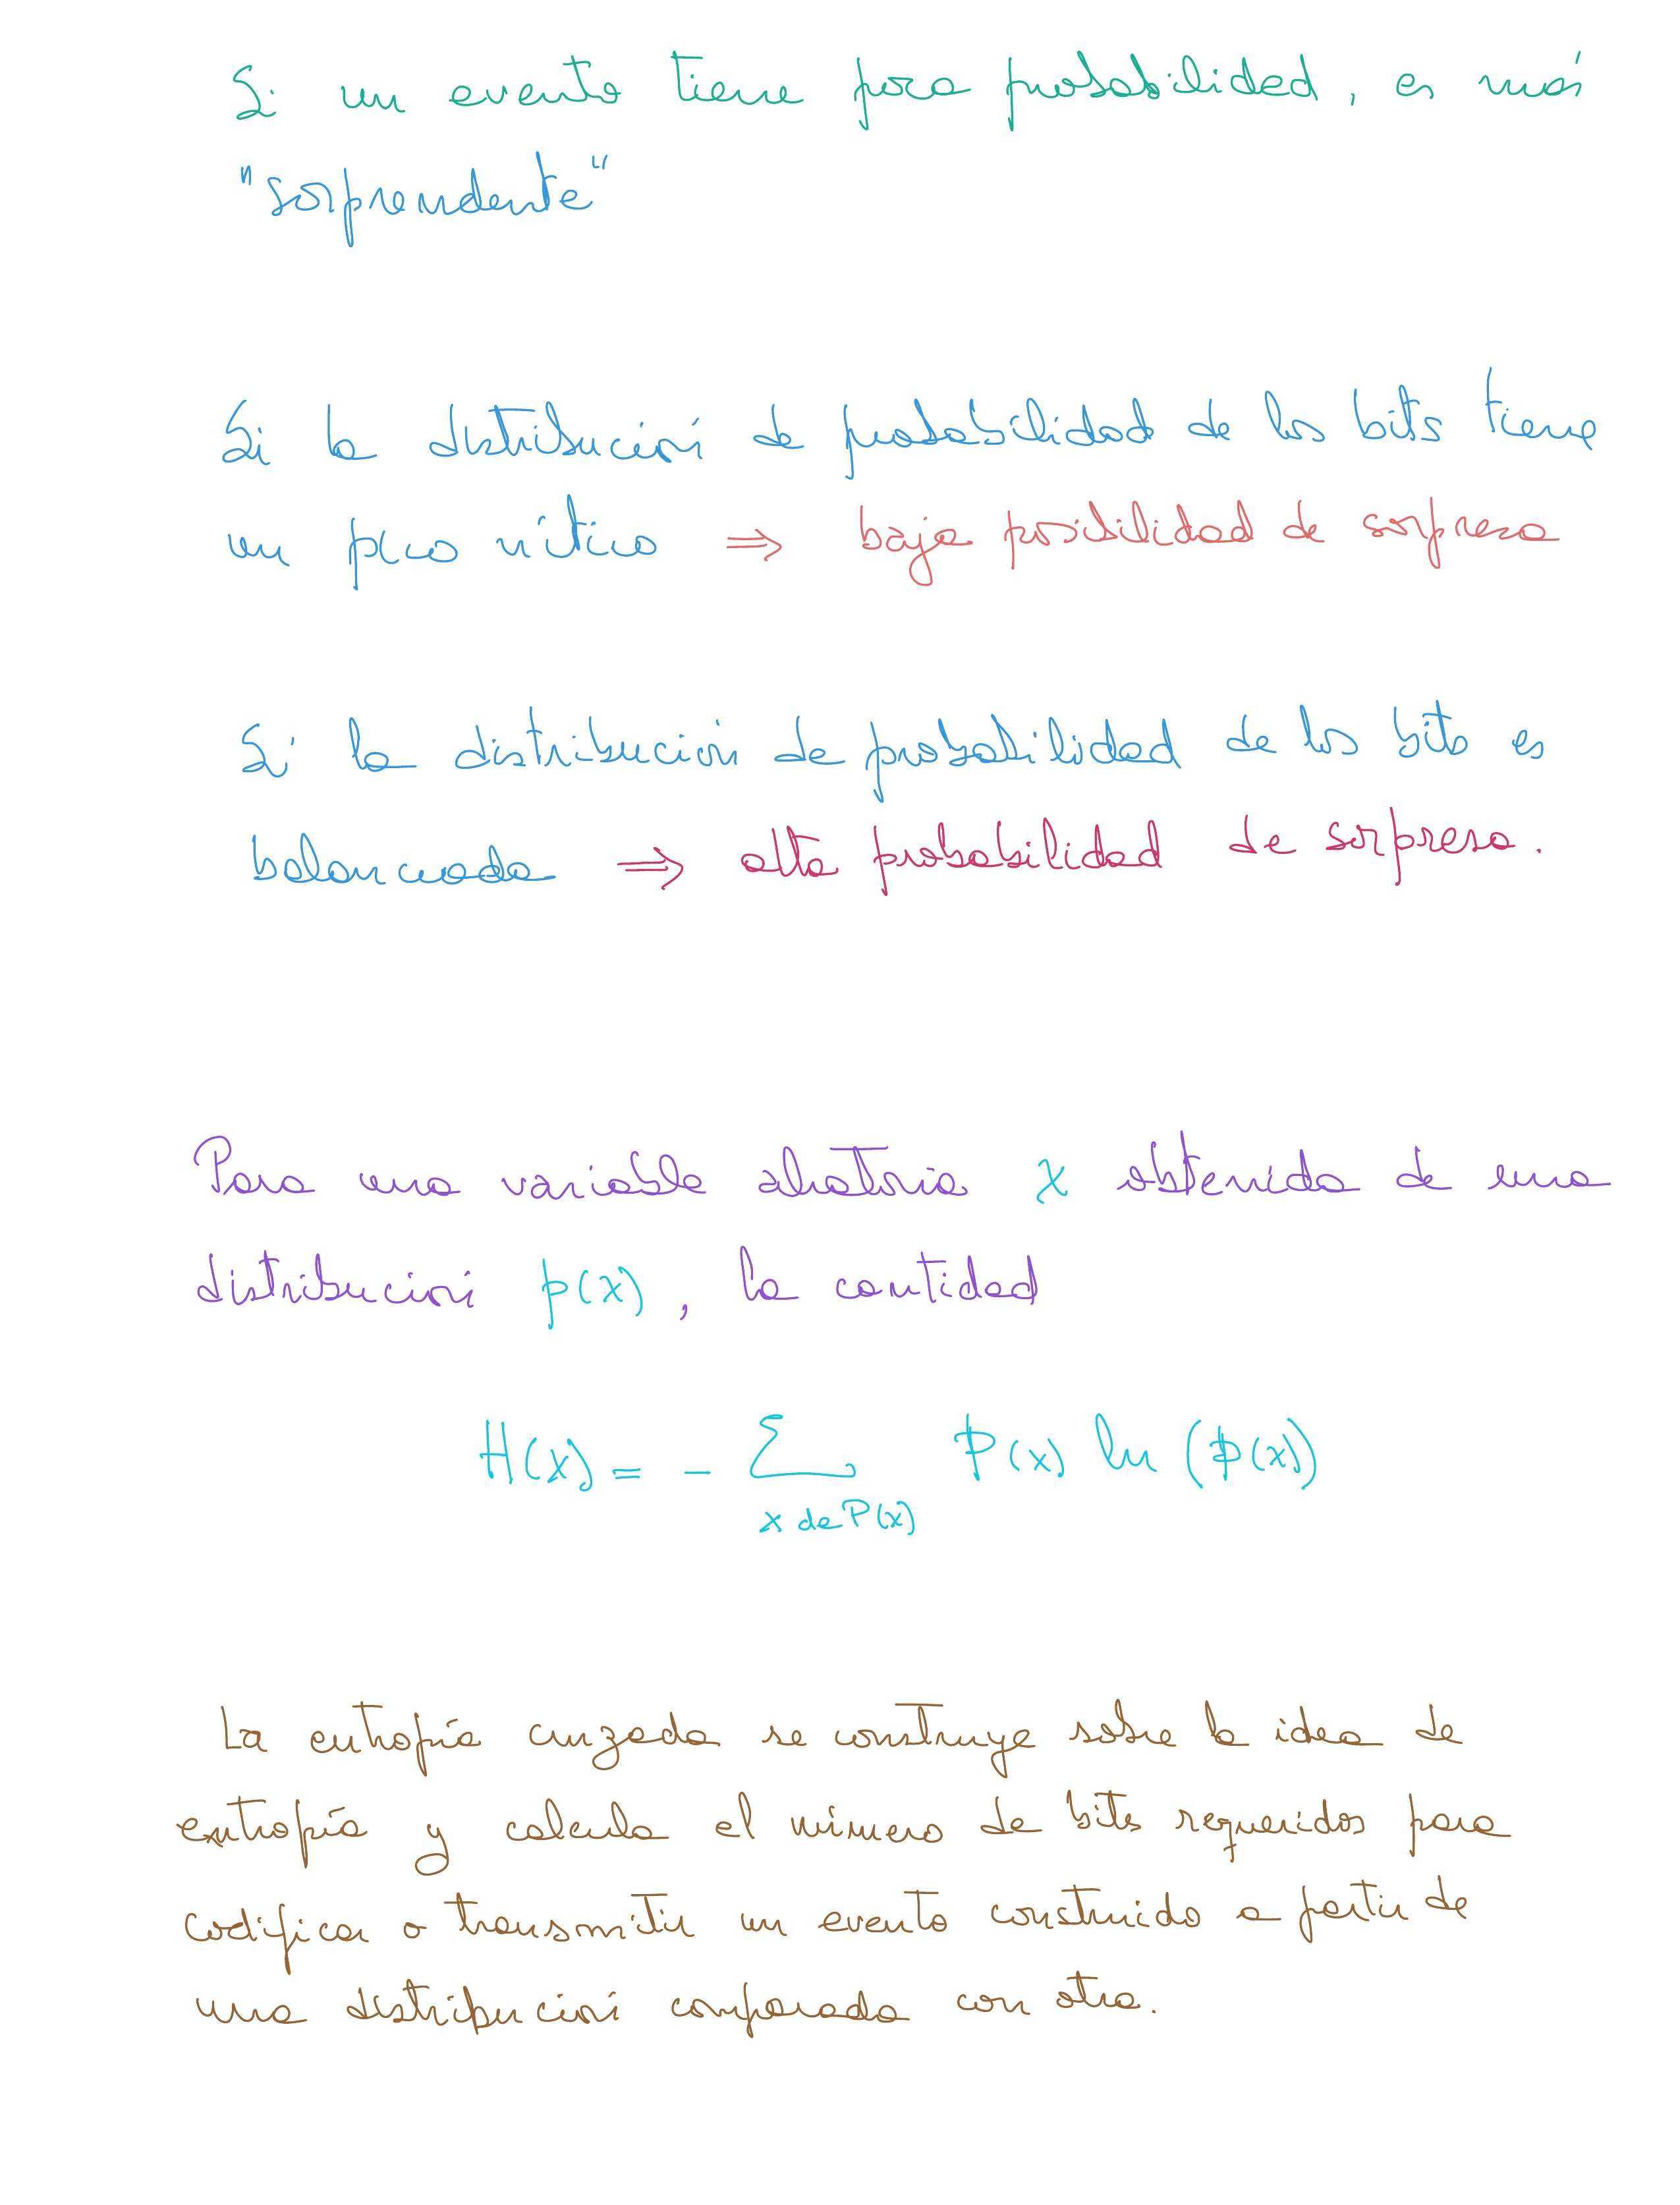 Si un evento tiene poca probabilidad, es más
"sorprendente"
Si la distribución de probabilidad de los bits tiene
un pico nítico ⇒ baja posibilidad de sorpresa
Si la distribución de probabilidad de los bits es
balanceada ⇒ alta probabilidad de sorpresa.
Para una variable aleatoria x obtenida de una
distribución p(x), la cantidad
H(x) = - ∑ P(x) ln (P(x))
x de P(x)
La entropía cruzada se construye sobre la idea de
entropía y calcula el número de bits requeridos para
codificar o transmitir un evento construido a partir de
una distribución comparada con otra.